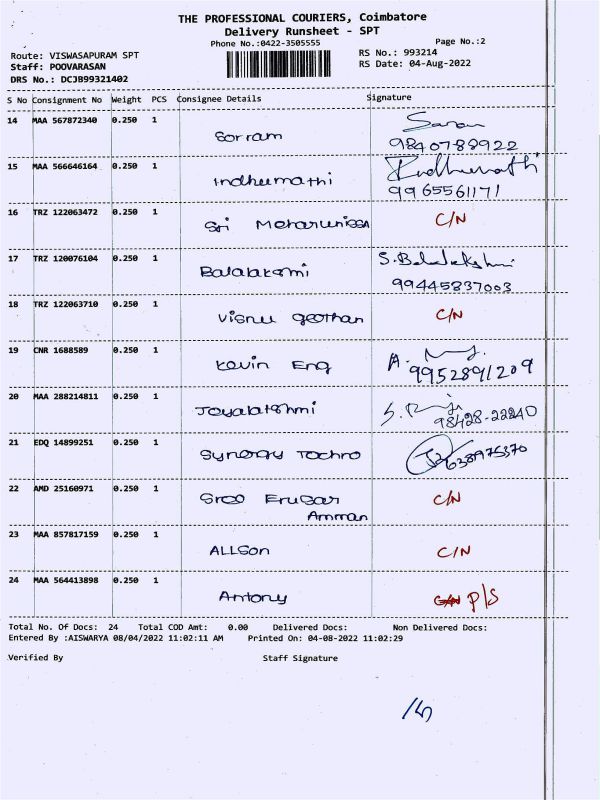 THE PROFESSIONAL COURIERS, Coimbatore
Delivery Runsheet - SPT
Phone No.:0422-3505555 Page No.:2
Route: VISWASAPURAM SPT RS No.: 993214
Staff: POOVARASAN RS Date: 04-Aug-2022
DRS No.: DCJB99321402
S No Consignment No Weight PCS Consignee Details Signature
14 MAA 567872340 0.250 1
Sorram 9840788922
15 MAA 566646164 0.250 1
Indhumathi 9965561171
16 TRZ 122063472 0.250 1 C/N
Sri Meharunissa
17 TRZ 120076104 0.250 1 S. Balalakshmi
Balalakshmi 99445837003
18 TRZ 122063710 0.250 1 C/N
Visnu geothan
19 CNR 1688589 0.250 1
Kevin Eng 9952891209
20 MAA 288214811 0.250 1
Jayalakshmi 98428-22240
21 EDQ 14899251 0.250 1
Synergy Techro
22 AMD 25160971 0.250 1 C/N
Sree Erusar
Amman
23 MAA 857817159 0.250 1
ALLSon C/N
24 MAA 564413898 0.250 1
Antony P/S
Total No. Of Docs: 24 Total COD Amt: 0.00 Delivered Docs: Non Delivered Docs:
Entered By :AISWARYA 08/04/2022 11:02:11 AM Printed On: 04-08-2022 11:02:29
Verified By Staff Signature